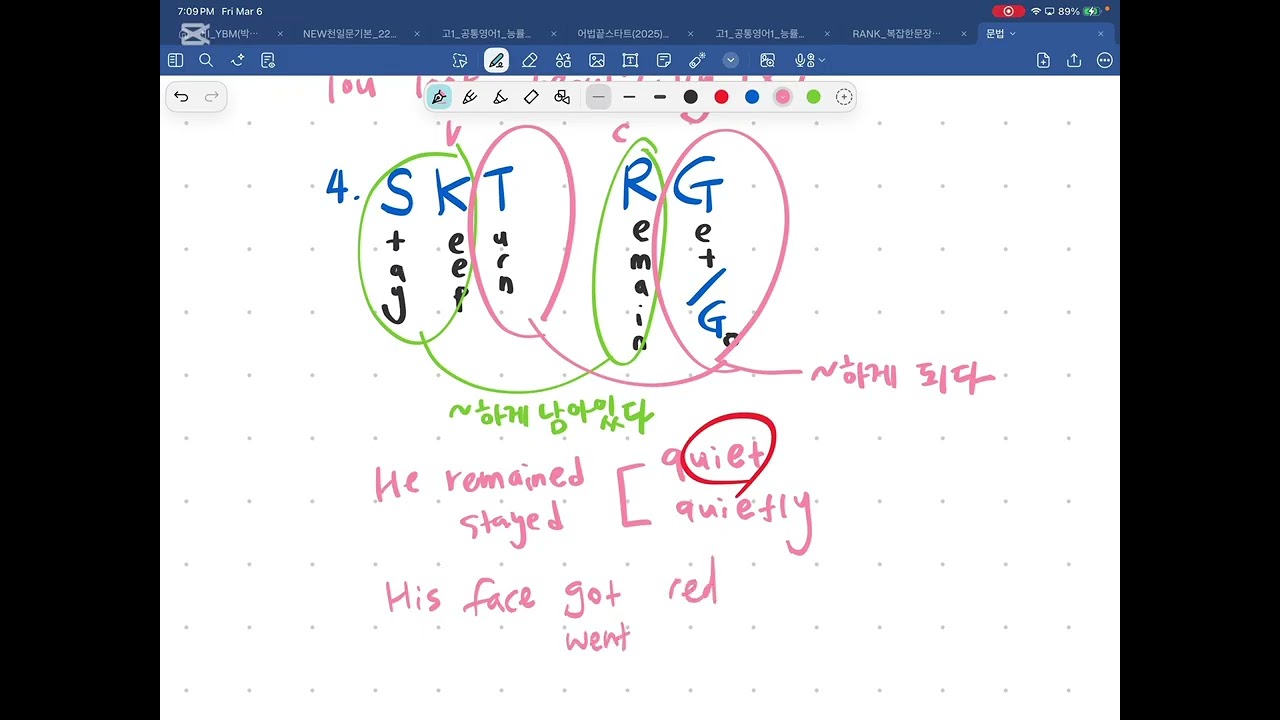 7:09 PM Fri Mar 6
89%
_YBM(박…
NEW천일문기본_22…
고1_공통영어1_능률…
어법끝스타트(2025)…
고1_공통영어1_능률…
RANK_복잡한문장…
문법
You
V
C
4. S K T R G
Stay
Keep
Turn
Remain
Get/Go
~하게 되다
~하게 남아있다
He remained [ quiet
stayed quietly
His face got red
went